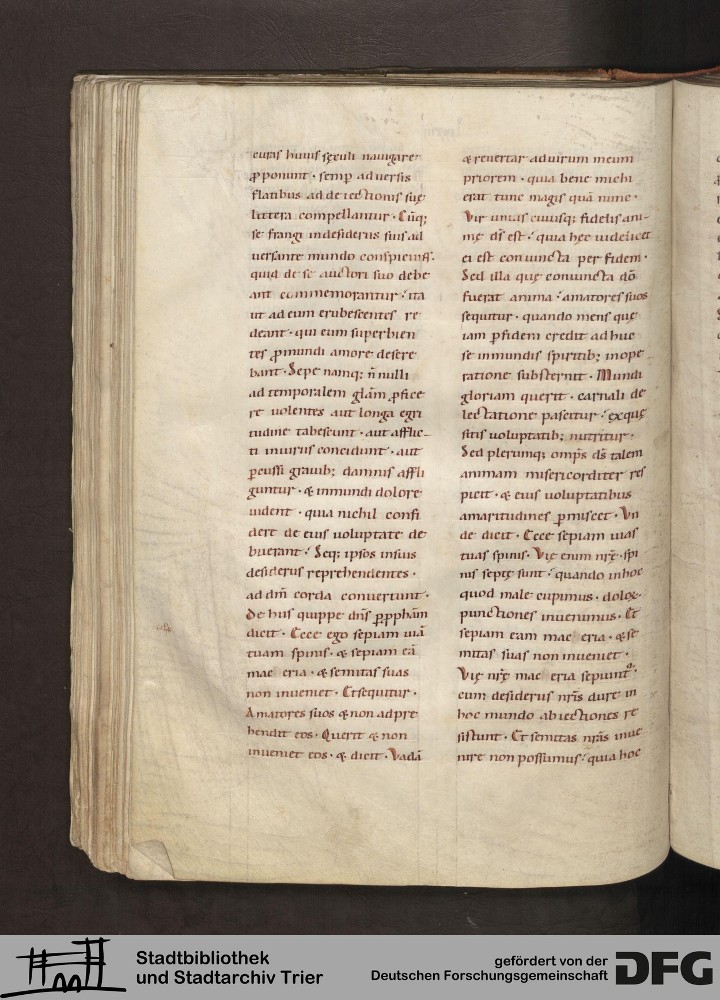 curas huius sęculi nauigare
ꝓponunt · semp adversis
flatibus ad deiectionis suę
littera compellantur · Cūq;
se frangi indesideriis suis ad
uersante mundo conspiciunt ·
quid de se auctori suo debe
ant commemorantur · ita
ut ad eum erubescentes re
deant · qui eum superbien
tes ꝓmundi amore desere
bant · Sepe namq; ñnulli
ad temporalem glām ꝓfice
re uolentes aut longa egri
tudine tabescunt · aut afflic
ti iniuriis concidunt · aut
ꝑcussi grauib; damnis affli
guntur · & inmundi dolore
uident · quia nichil confi
dere de eius uoluptate de
buerant · Seq; ipsos insuis
desideriis reprehendentes ·
ad dm̄ corda conuertunt ·
De hus quippe dñs ꝑꝓphām
dicit · Ecce ego sepiam uiā
tuam spinis · & sepiam eā
mac eria · & semitas suas
non inueniet · Et sequitur ·
Amatores suos & non adpre
hendit eos · Querit & non
inueniet eos · & dicit · Vadā
& reuertar aduirum meum
priorem · quia bene michi
erat tunc magis quā nunc ·
Vir unius cuiusq; fidelis ani-
mę ds̄ est · quia hec uidelicet
ei est coniuncta per fidem ·
Sed illa quę coniuncta dō
fuerat anima · amatores suos
sequitur · quando mens quę
iam ꝑfidem credit adhuc
se inmundis spiritib; inope
ratione substernit · Mundi
gloriam querit · carnali de
lectatione pascitur · exquę
sitis uoluptatib; nutritur ·
Sed plerumq; omps̄ ds̄ talem
animam misericorditer res
picit · & eius uoluptatibus
amaritudines ꝑmiscet · Vn
de dicit · Ecce sepiam uias
tuas spinis · Vię enim nrę · spi
nis septę sunt · quando inhoc
quod male cupimus · doloꝝ ·
punctiones inuenimus · Et
sepiam eam mac eria · & se
mitas suas non inueniet ·
Vię nrę mac eria sepiunt ·
cum desideriis nr̄is dure in
hoc mundo abiectiones re
sistunt · Et semitas nrās inue
nire non possumus · quia hoc
Stadtbibliothek
und Stadtarchiv Trier
gefördert von der
Deutschen Forschungsgemeinschaft
DFG